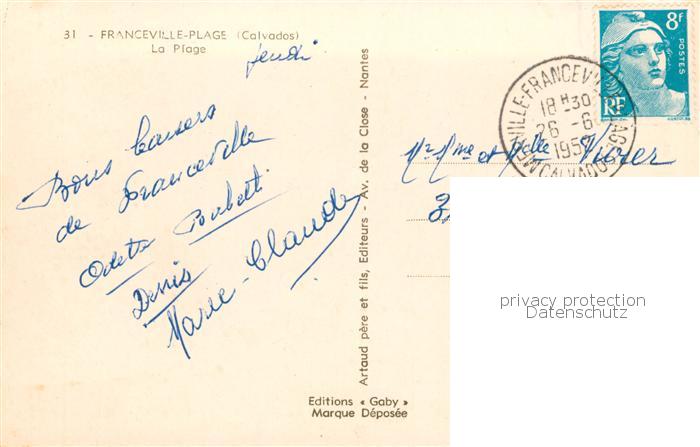 31 - FRANCEVILLE-PLAGE (Calvados)
La Plage
jeudi
Bons baisers
de Franceville
Odette
Denis
Marie-Claude
Artaud père et fils, Editeurs - Av. de la Close - Nantes
Editions « Gaby »
Marque Déposée
8F
POSTES
RF
18 H 30
26 - 6
CALVADOS
Mr Mme et Melle
privacy protection
Datenschutz